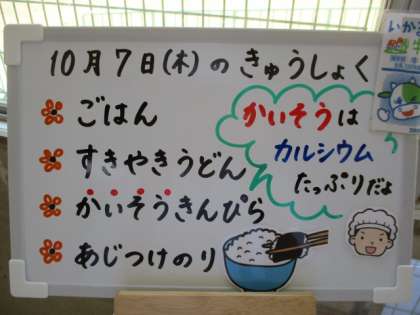 10月7日(木)のきゅうしょく
ごはん
すきやきうどん
かいそうきんぴら
あじつけのり
かいそうは
カルシウム
たっぷりだよ